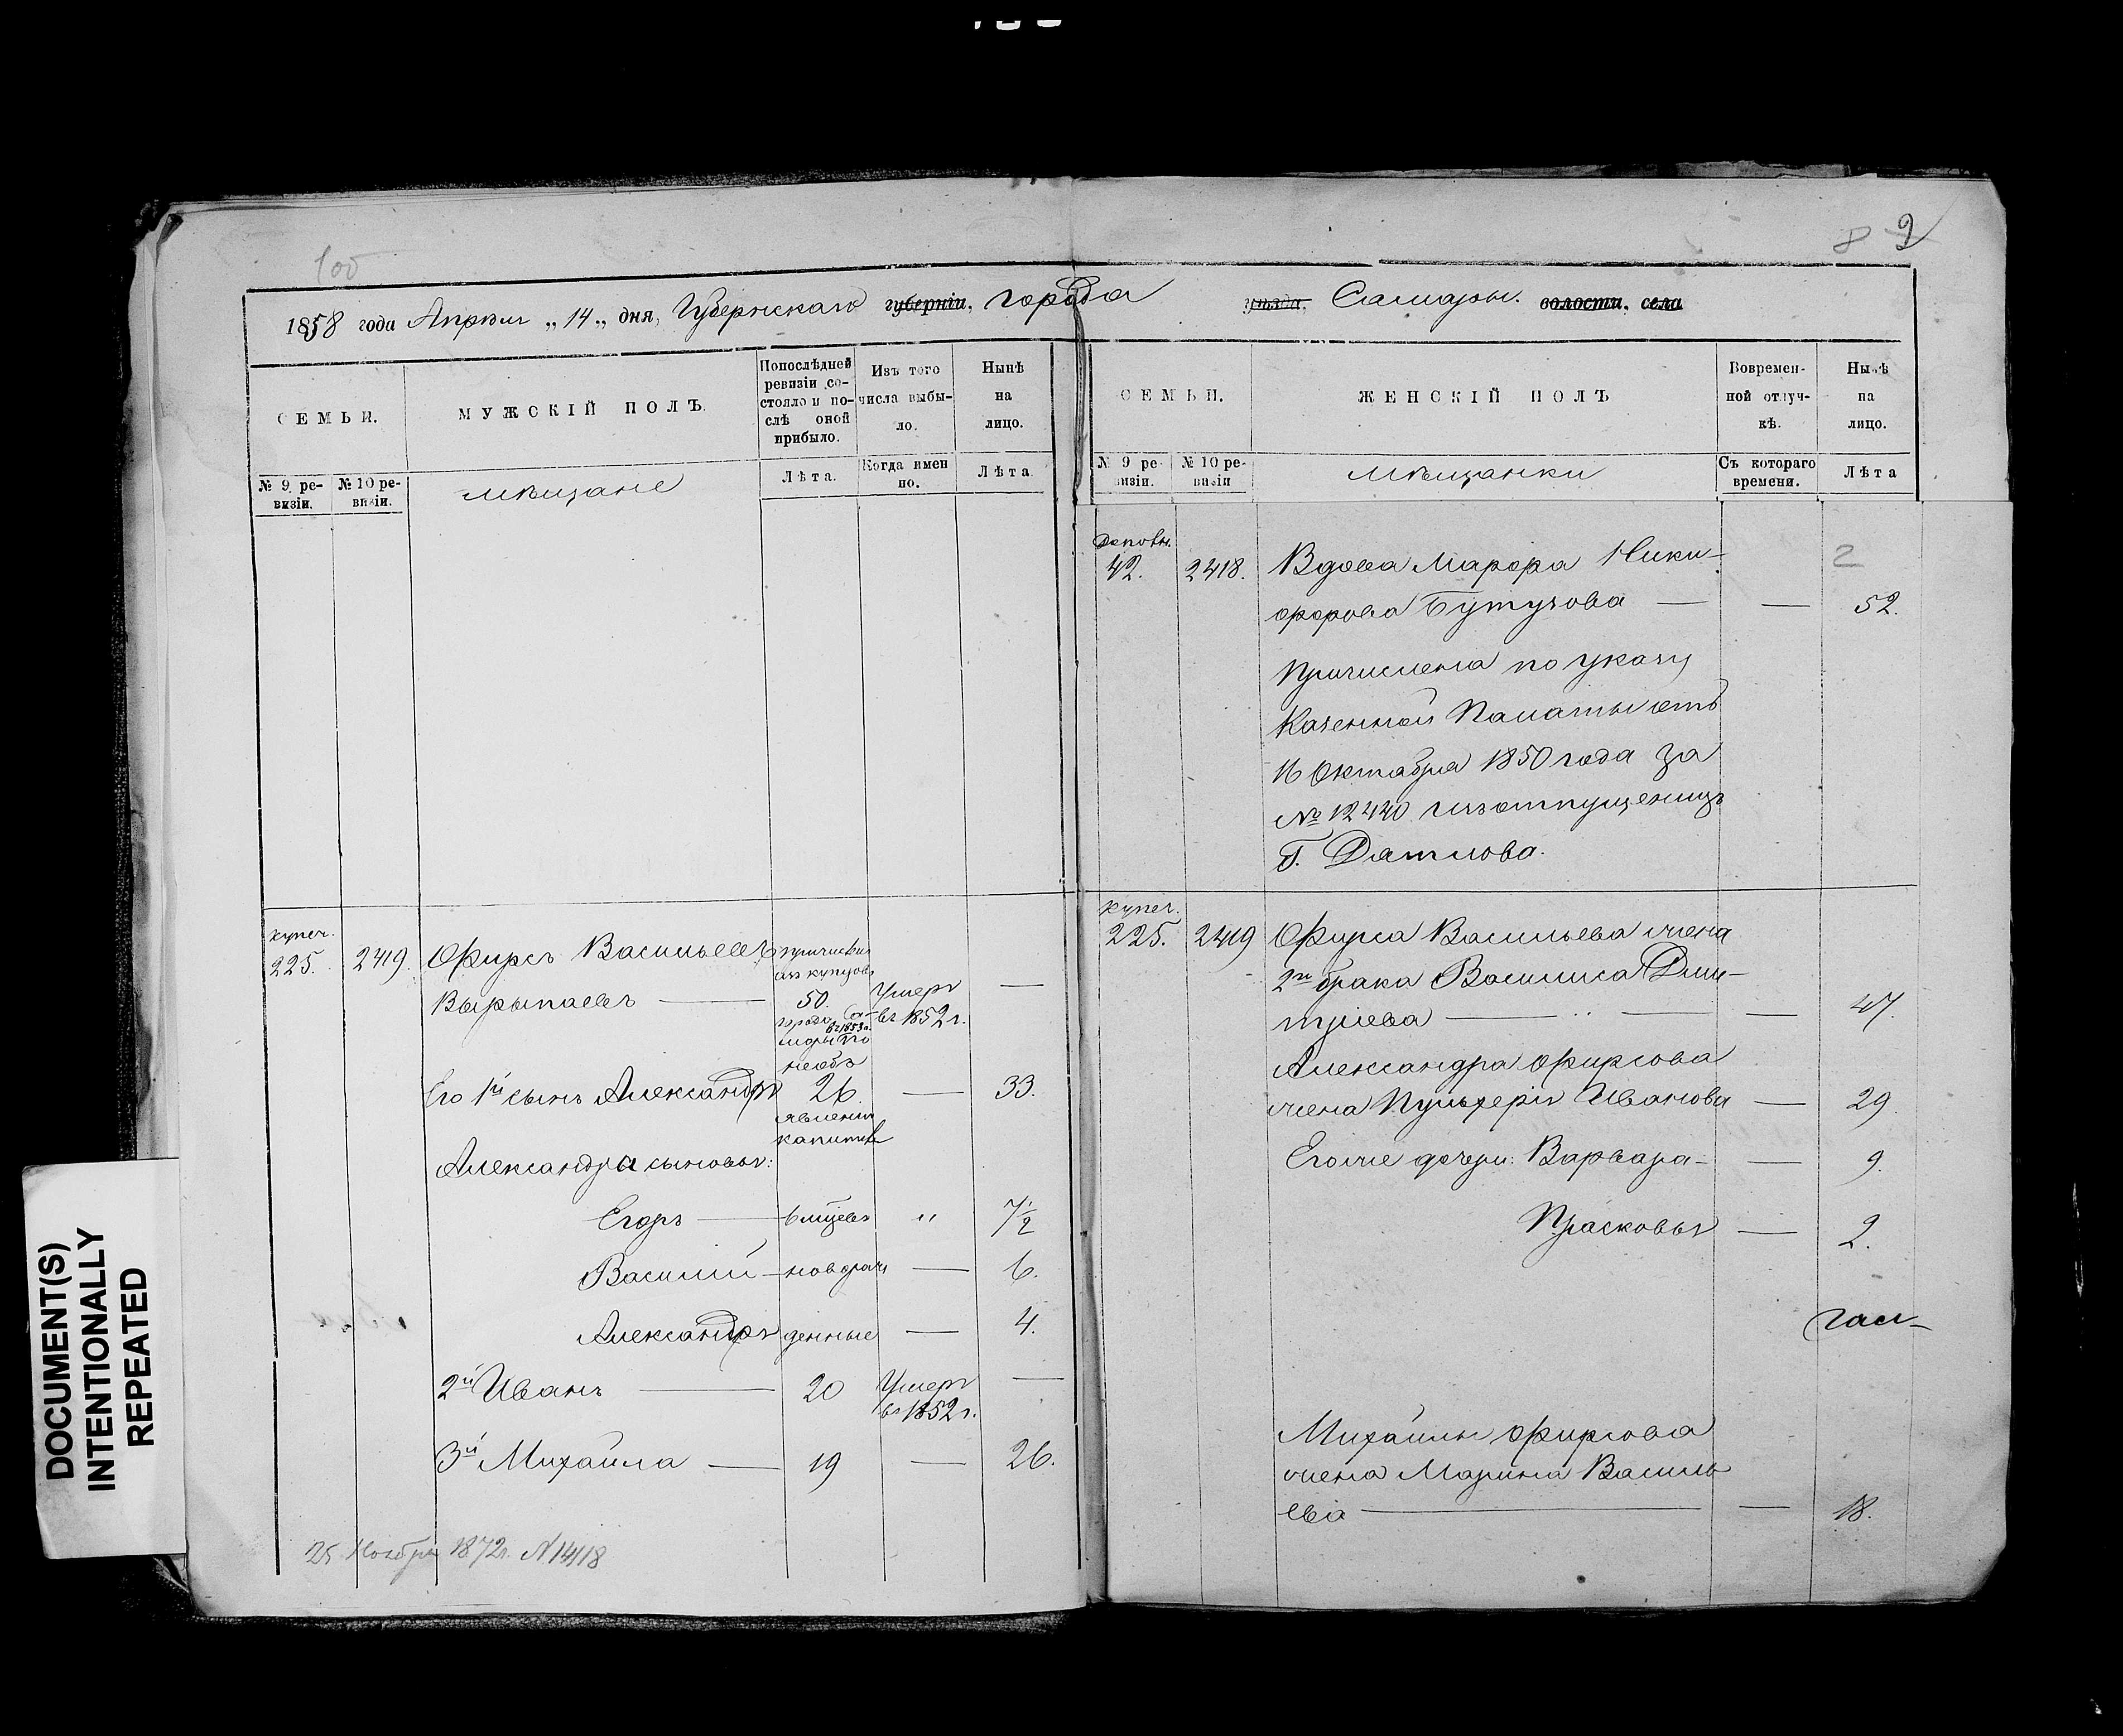 DOCUMENT(S)
INTENTIONALLY
REPEATED
8 9
1858 года Апрѣля „14„ дня, Губернскаго губерніи, города уѣзда, Самары. волости, села
СЕМЬИ.
МУЖСКІЙ ПОЛЪ.
Попослѣдней
ревизіи со-
стояло и по-
слѣ оной
прибыло.
Изъ того
числа выбы-
ло.
Нынѣ
на
лицо.
№ 9 ре-
визіи.
№ 10 ре-
визіи.
мѣщане
Лѣта.
Когда имен
но.
Лѣта.
купеч.
225. 2419. Фирсъ Васильевъ причислен
изъ купцовъ
Вырыпаевъ — 50. Умеръ
въ 1852 г. —
города Са-
въ 1853 г.
мары по
необъ
Его 1й сынъ Александръ 26. — 33.
явленію
капитал
Александра сыновья:
Егоръ — вмѣщен „ 7 1/2
Василій — новорож — 6.
Александръ денные — 4.
2й Иванъ — 20 Умеръ —
въ 1852 г.
3й Михайла — 19 — 26.
25 Ноября 1872г. N 14118
СЕМЬИ.
ЖЕНСКІЙ ПОЛЪ
Вовремен-
ной отлуч-
кѣ.
Нынѣ
на
лицо.
№ 9 ре-
визіи.
№ 10 ре-
визіи
мѣщанки
Съ котораго
времени.
Лѣта
42. 2418. Вдова Марфа Ники- 2
форова Бутузова — — 52.
Причислена по указу
Казенной Палаты отъ
16 Октября 1850 года за
№ 12440 изъ отпущеницъ
Г. Датлова.
купеч.
225. 2419 Фирса Васильева жена
2го брака Василиса Дми-
тріева — — 47.
Александра Фирсова
жена Пульхерія Иванова — 29.
Егоже дочери: Варвара — — 9.
Прасковья — 2.
Михайлы Фирсова
жена Марина Василь
ева — — 18.